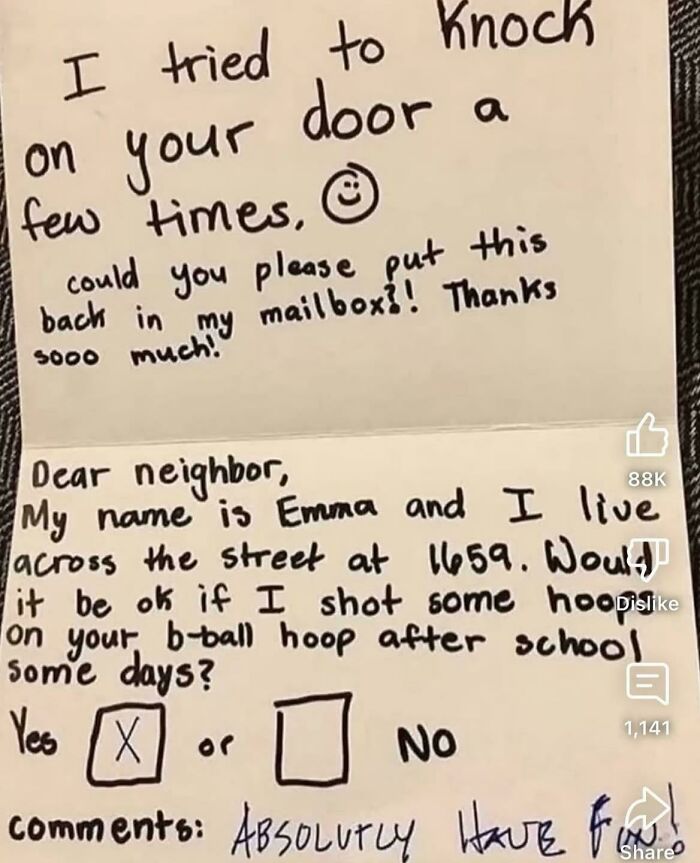 I tried to knock
on your door a
few times. ☺
could you please put this
back in my mailbox?! Thanks
sooo much!
Dear neighbor,
My name is Emma and I live
across the street at 1659. Would
it be ok if I shot some hoops
on your b-ball hoop after school
some days?
Yes X or NO
comments: ABSOLUTLY HAVE FUN!
88K
Dislike
1,141
Share